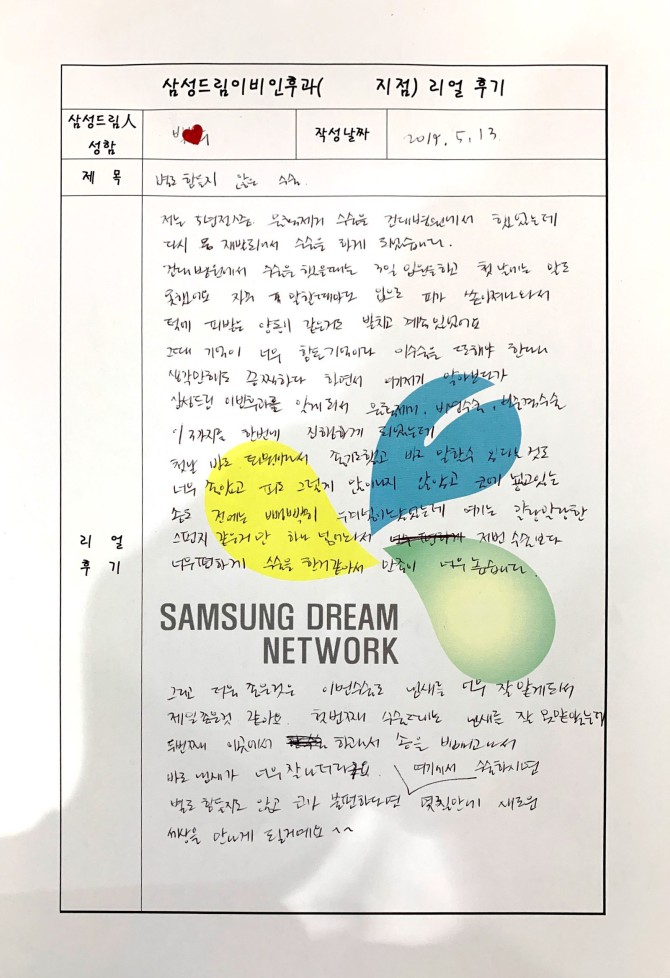 삼성드림이비인후과( 지점) 리얼 후기
삼성드림人 성함
작성날짜
2019. 5. 13
제 목
별로 힘들지 않은 수술.
리 얼 후 기
저는 5년전쯤 물혹제거 수술을 건대병원에서 했었는데
다시 재발되어서 수술을 하게 되었습니다.
건대병원에서 수술을 했을때는 3일 입원을하고 첫날에는 말도
못했어요 말할때마다 입으로 피가 쏟아져나와서
턱에 피받는 같은거로 받치고 계속있었어요
그때 기억이 너무 힘든기억이라 이수술을 또해야 한다니
생각만해도 끔찍하다 하면서 여기저기 알아보다가
삼성드림 이비인후과를 알게되서 물혹제거, 비염수술, 비중격수술
이 3가지를 한번에 진행하게 되었는데
첫날 바로 퇴원해서 좋기도했고 바로 말할수 있다는 점도
너무 좋았고 피도 그렇게 많이나지 않았고 코에 넣고있는
솜도 전에는 빽빽히 여기는 말랑말랑한
스펀지 같은거만 하나 저번 수술보다
너무편하게 수술을 한거같아서 만족이 너무 높습니다.
SAMSUNG DREAM
NETWORK
그리고 더욱 좋은것은 이번수술로 냄새를 너무 잘 맡게되서
제일좋은것 같아요. 첫번째 수술때에는 냄새를 잘 못맡았는데
두번째 이곳에서 하고나서 솜을 빼내고나서
바로 냄새가 너무잘나더라고요. 여기에서 수술하시면
별로 힘들지도 않고 코가 불편하다면 몇일안에 새로운
세상을 만나게 될거예요 ^^